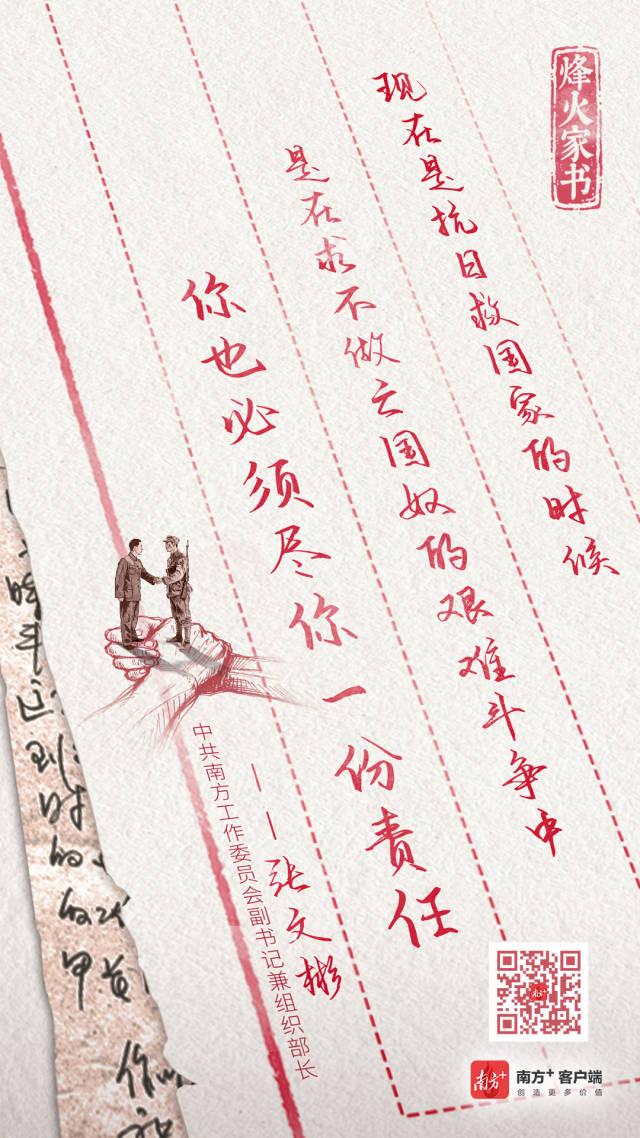 烽火家书
现在是抗日救国家的时候
是在求不做亡国奴的艰难斗争中
你也必须尽你一份责任
——张文彬
中共南方工作委员会副书记兼组织部长
到时的
南方+
南方+ 客户端
创造更多价值